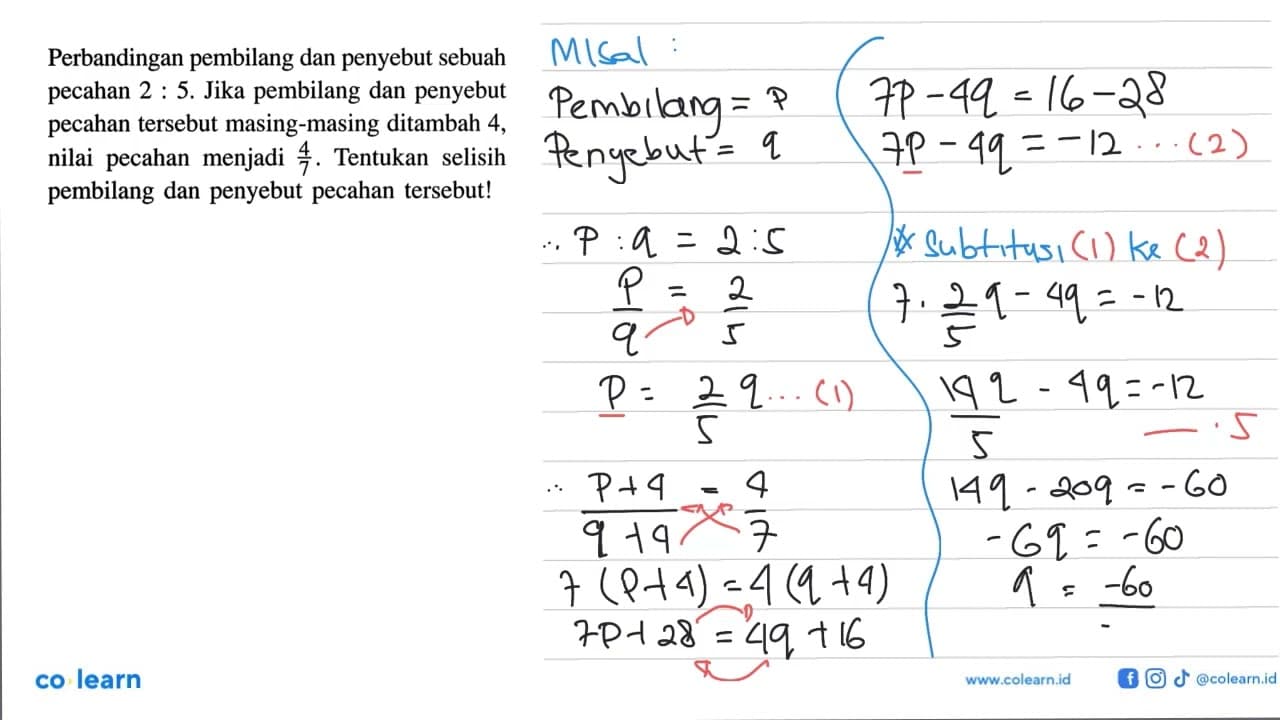 Perbandingan pembilang dan penyebut sebuah
pecahan 2 : 5. Jika pembilang dan penyebut
pecahan tersebut masing-masing ditambah 4,
nilai pecahan menjadi 4/7. Tentukan selisih
pembilang dan penyebut pecahan tersebut!
MISal :
Pembilang = P
Penyebut = q
∴ P : q = 2 : 5
P/q = 2/5
P = 2/5 q ... (1)
∴ P+4/q+4 = 4/7
7 (P+4) = 4 (q+4)
7P+28 = 4q+16
7P - 4q = 16 - 28
7P - 4q = -12 ... (2)
☆ Subtitusi (1) ke (2)
7 . 2/5 q - 4q = -12
14q/5 - 4q = -12
. 5
14q - 20q = -60
-6q = -60
q = -60/-
co learn
www.colearn.id
@colearn.id